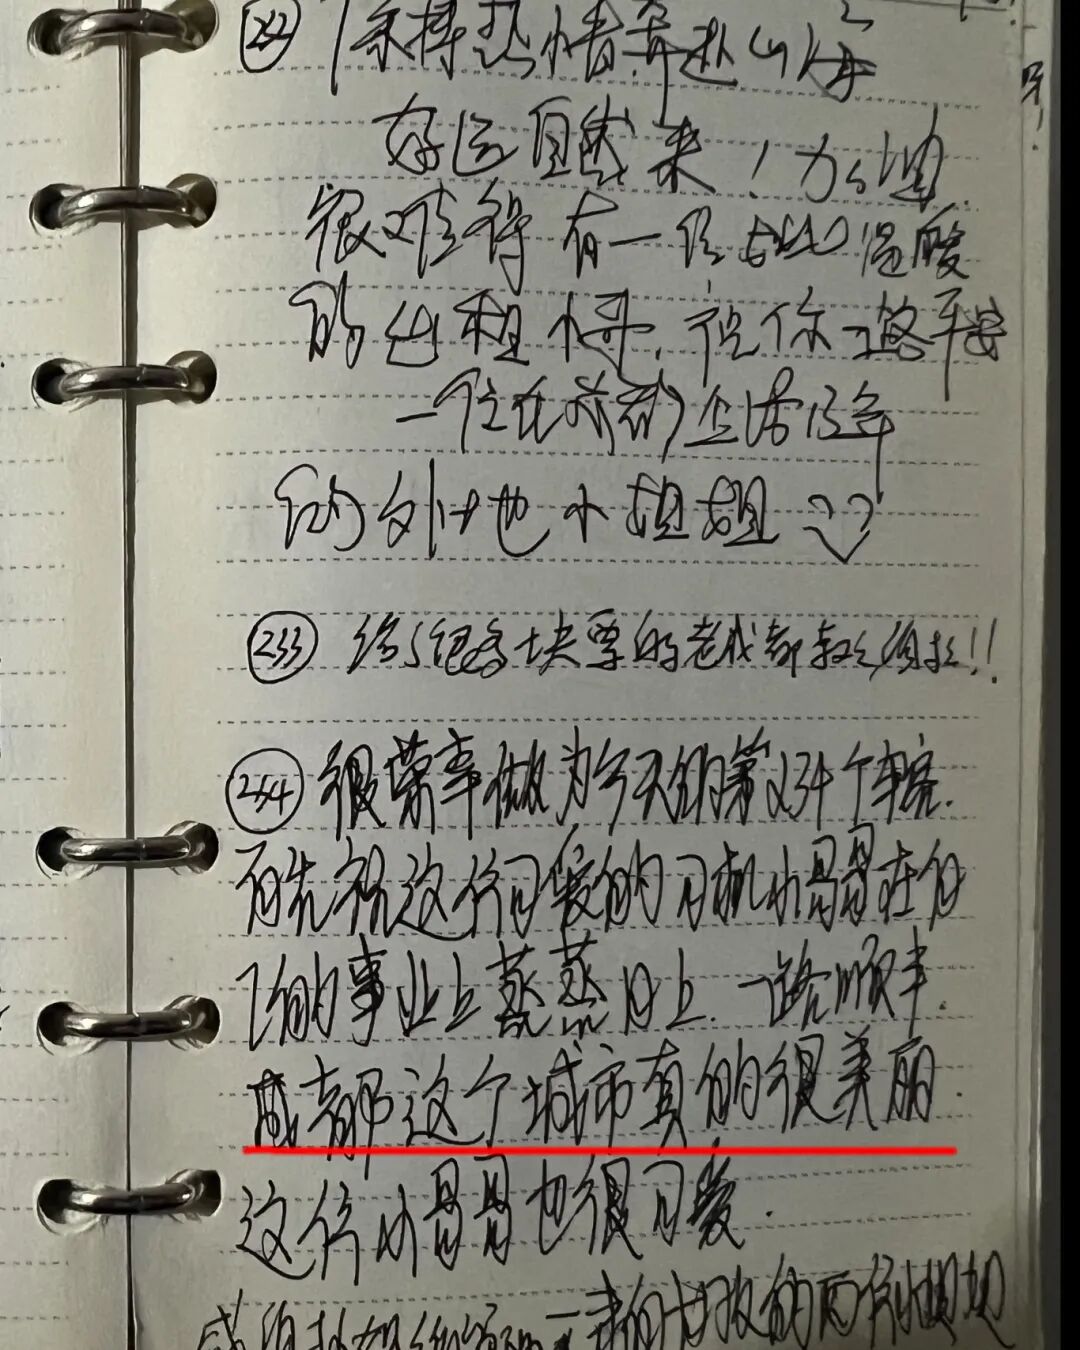 232 保持热情奔赴山海
好运自然来！加油
很难得有一段如此温暖
的出租小哥，祝你一路平安
一个在成都生活15年
的外地小姐姐
233 很多块票的老成都
234 很荣幸做为今天的第234个乘客.
首先祝这位可爱的司机小哥哥在自
己的事业上蒸蒸日上.一路顺丰.
成都这个城市真的很美丽.
这位小哥哥也很可爱.